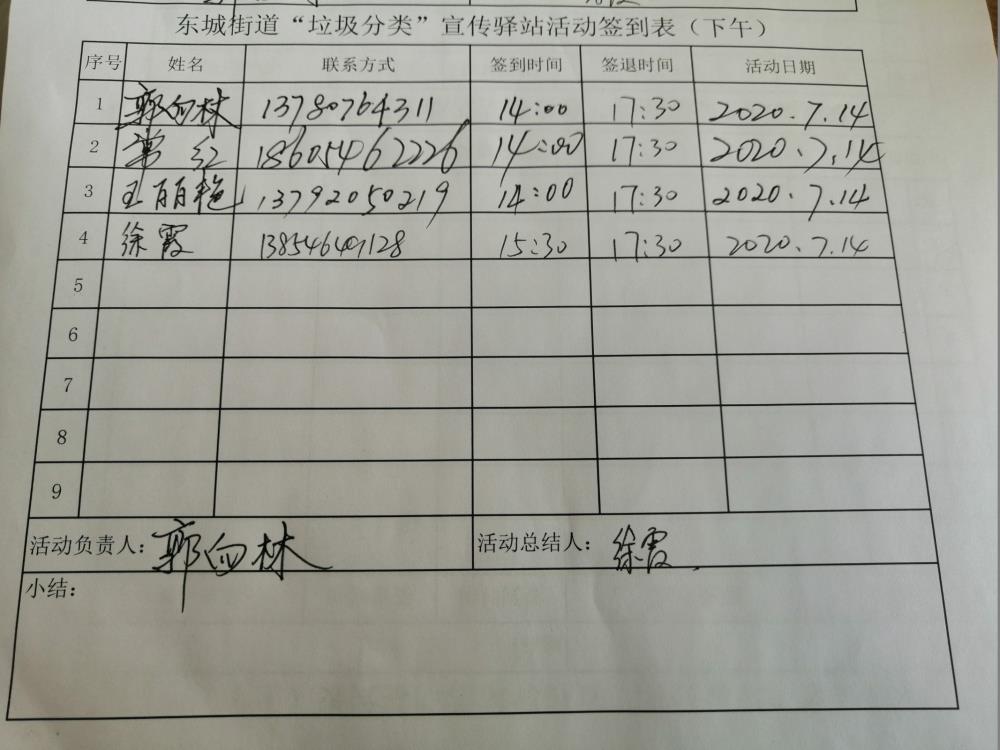 东城街道“垃圾分类”宣传驿站活动签到表（下午）
序号 姓名 联系方式 签到时间 签退时间 活动日期
1 郭向林 13780764311 14:00 17:30 2020.7.14
2 常红 18605462226 14:00 17:30 2020.7.14
3 王丽艳 13792050219 14:00 17:30 2020.7.14
4 徐霞 15:30 17:30 2020.7.14
5
6
7
8
9
活动负责人：郭向林 活动总结人：徐霞
小结：